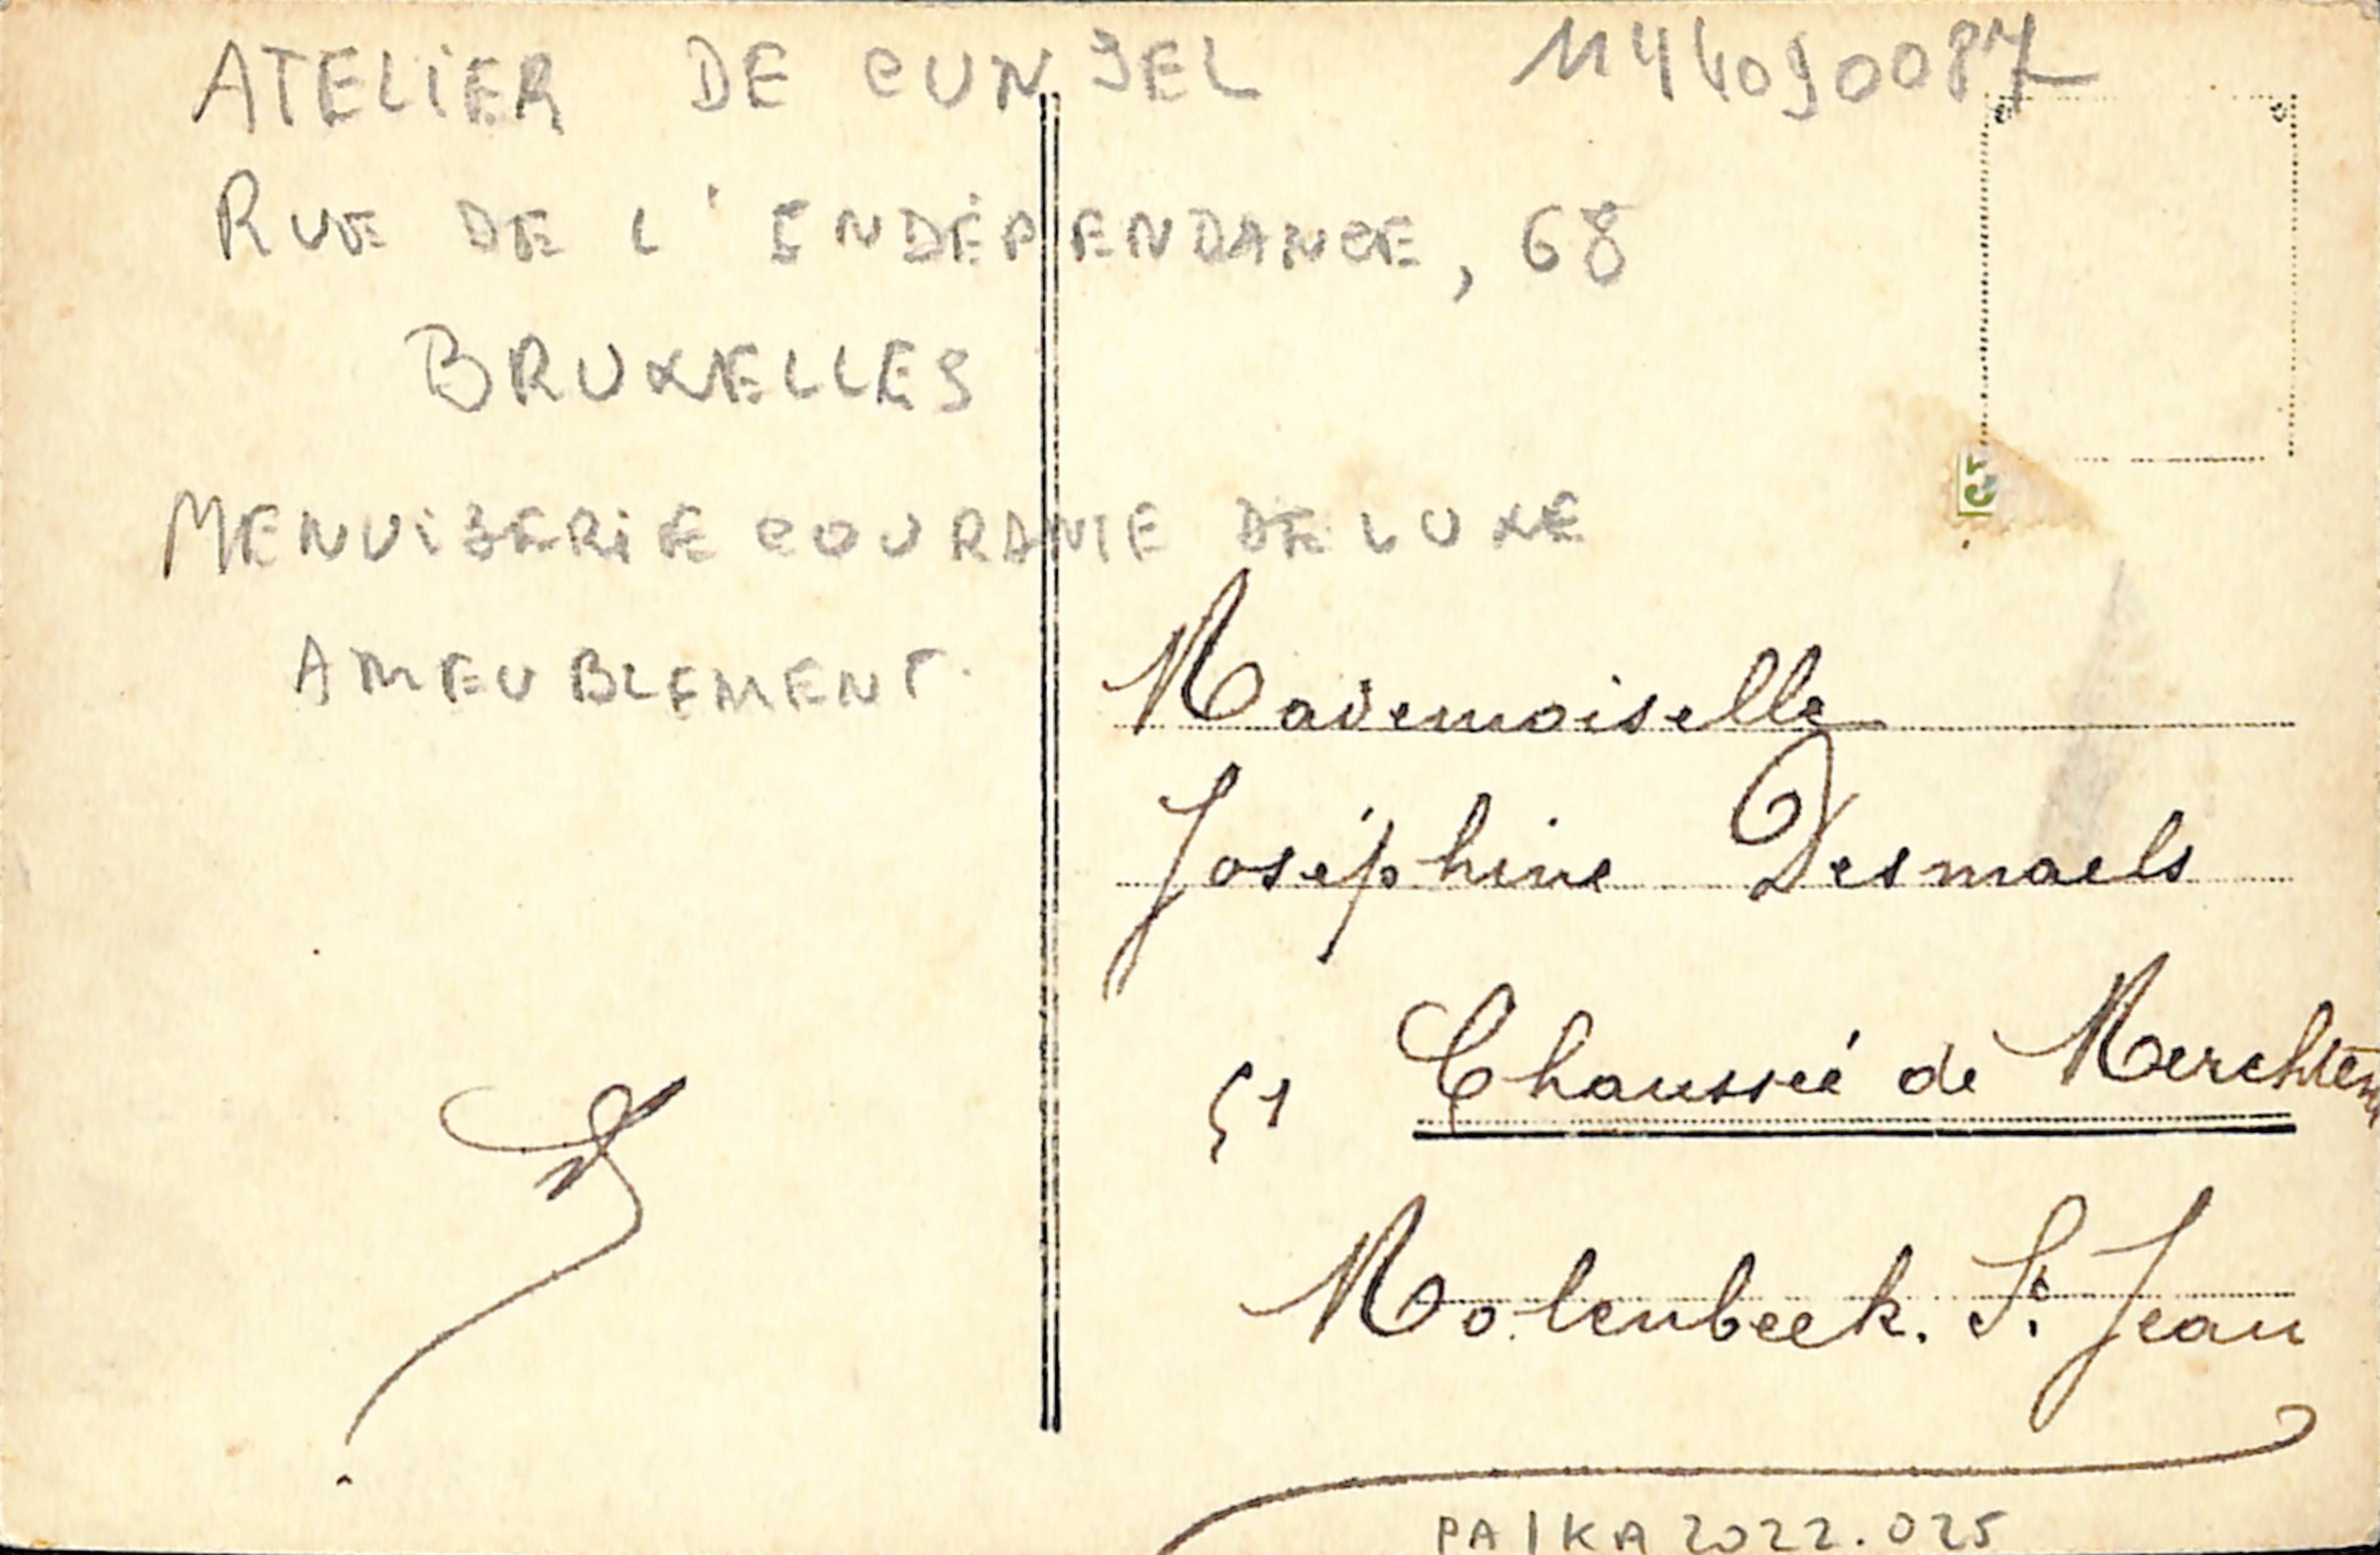 ATELIER DE CUNSEL 1144090087
RUE DE L'INDÉPENDANCE, 68
BRUXELLES
MENUISERIE COURANTE DE LUXE
AMEUBLEMENT.
Mademoiselle
Joséphine Desmaels
51 Chaussée de Merchtem
Molenbeek. St Jean
PA/KA 2022.025